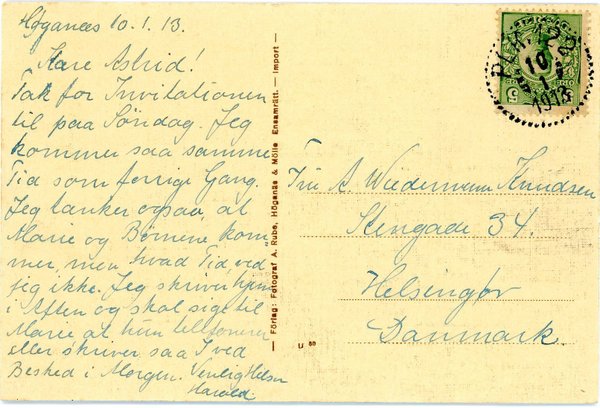 Høganæs 10.1.13.
Kære Astrid!
Tak for Invitationen
til paa Søndag. Jeg
kommer saa samme
Tid som forrige Gang.
Jeg tænker ogsaa, at
Marie og Børnene kom-
mer, men hvad Tid, ved
jeg ikke. Jeg skriver hjem
i Aften og skal sige til
Marie at hun telefonerer
eller skriver saa I ved
Besked i Morgen. Venlig Hilsen
Harald.
— Förlag: Fotograf A. Rube, Höganäs & Mölle Ensamrätt. — Import —
U 55
PLK. 22
10 1
1913
5
Fru A. Wiedemann Knudsen
Stengade 34.
Helsingør
Danmark.